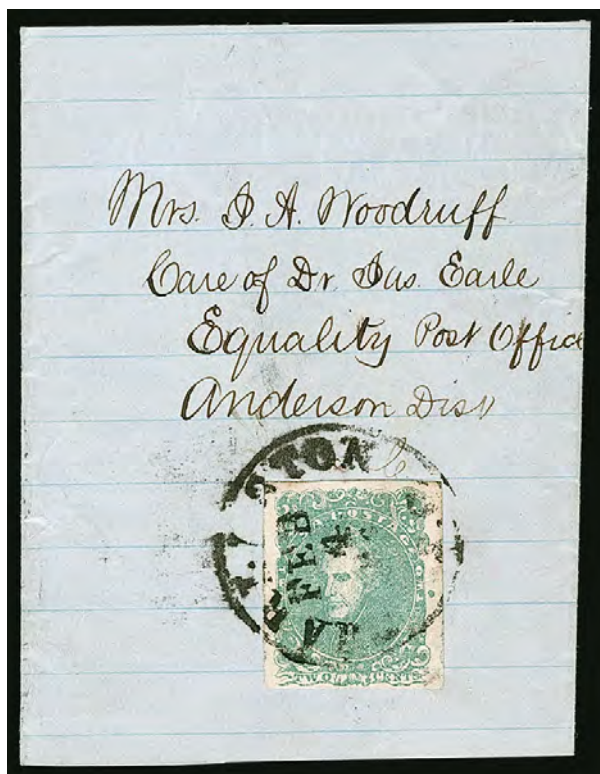 Mrs. J. A. Woodruff
Care of Dr Jas. Earle
Equality Post Office
Anderson Dist
FEB
4
POSTAGE
TWO CENTS